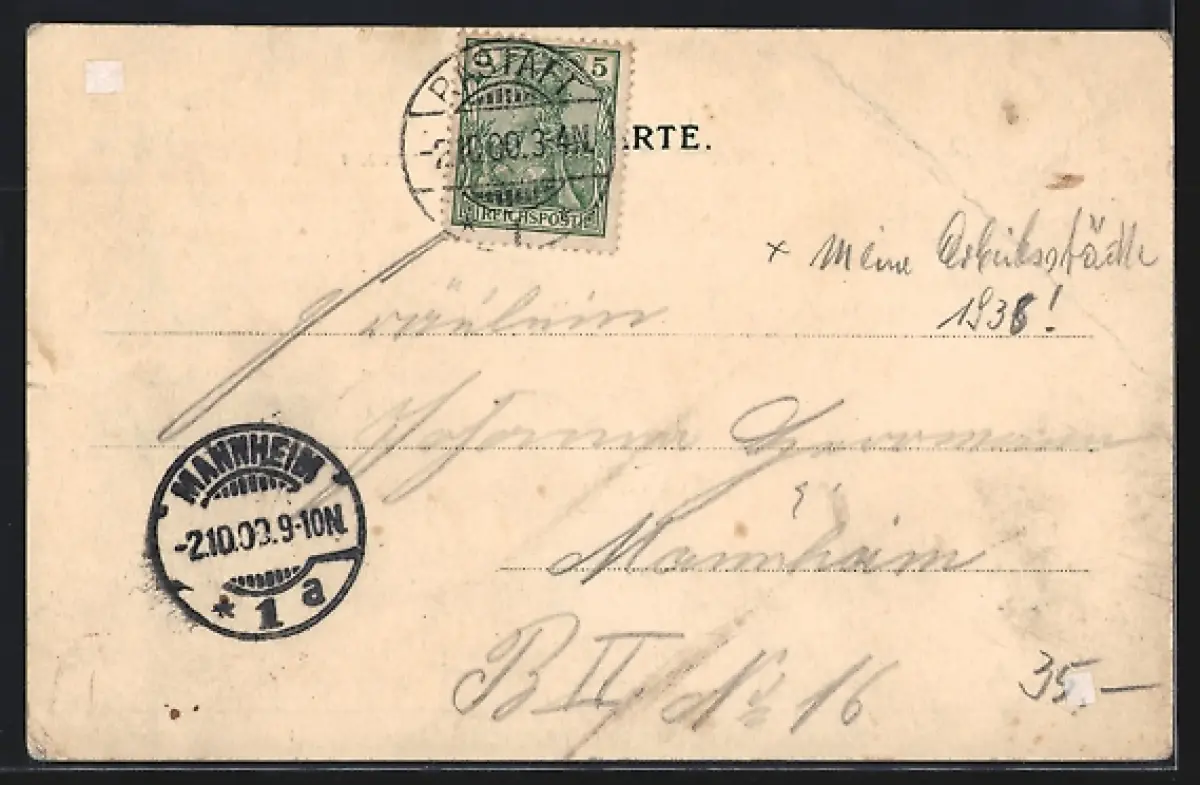 RASTATT
5
-2.10.00.3-4N.
ARTE.
REICHSPOST
* 1
x meine Arbeitsstädte
1938!
Fräulein
Mannheim
MANNHEIM
-2.10.00.9-10N.
* 1 a
B II No 16
35.-